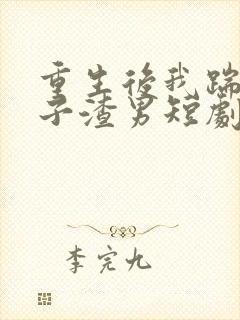 重生後我踹
子渣男短劇
李完九